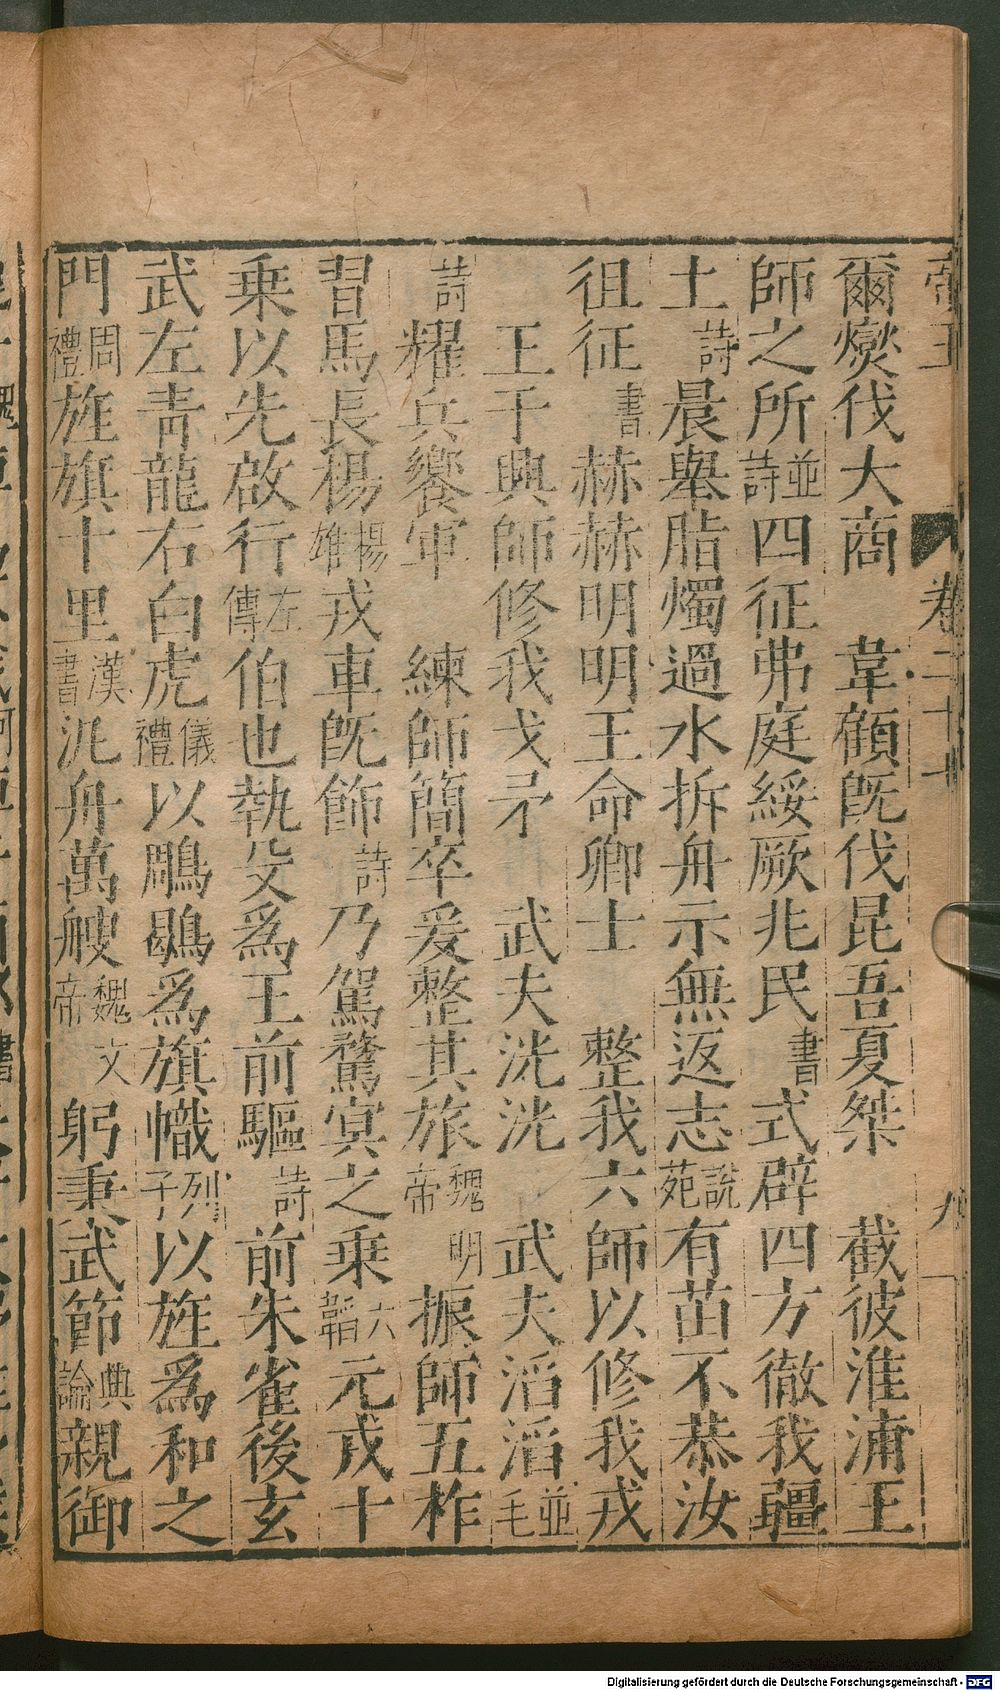 帝王 卷二十七 九
爾燮伐大商 韋顧旣伐昆吾夏桀 截彼淮浦王
師之所並詩四征弗庭綏厥兆民書式辟四方徹我疆
土詩晨舉脂燭過水拆舟示無返志說苑有苗不恭汝
徂征書赫赫明明王命卿士 整我六師以修我戎
王于興師修我戈矛 武夫洸洸 武夫滔滔並毛
詩耀兵饗軍 練師簡卒爰整其旅魏明帝振師五柞
習馬長楊楊雄戎車旣飾詩乃駕騖冥之乗六韜元戎十
乗以先啟行左傳伯也執殳爲王前驅詩前朱雀後玄
武左靑龍右白虎儀禮以鵰鶡爲旗幟列子以旌爲和之
門周禮旌旗十里漢書汎舟萬艘魏文帝躬秉武節典論親御
Digitalisierung gefördert durch die Deutsche Forschungsgemeinschaft - DFG